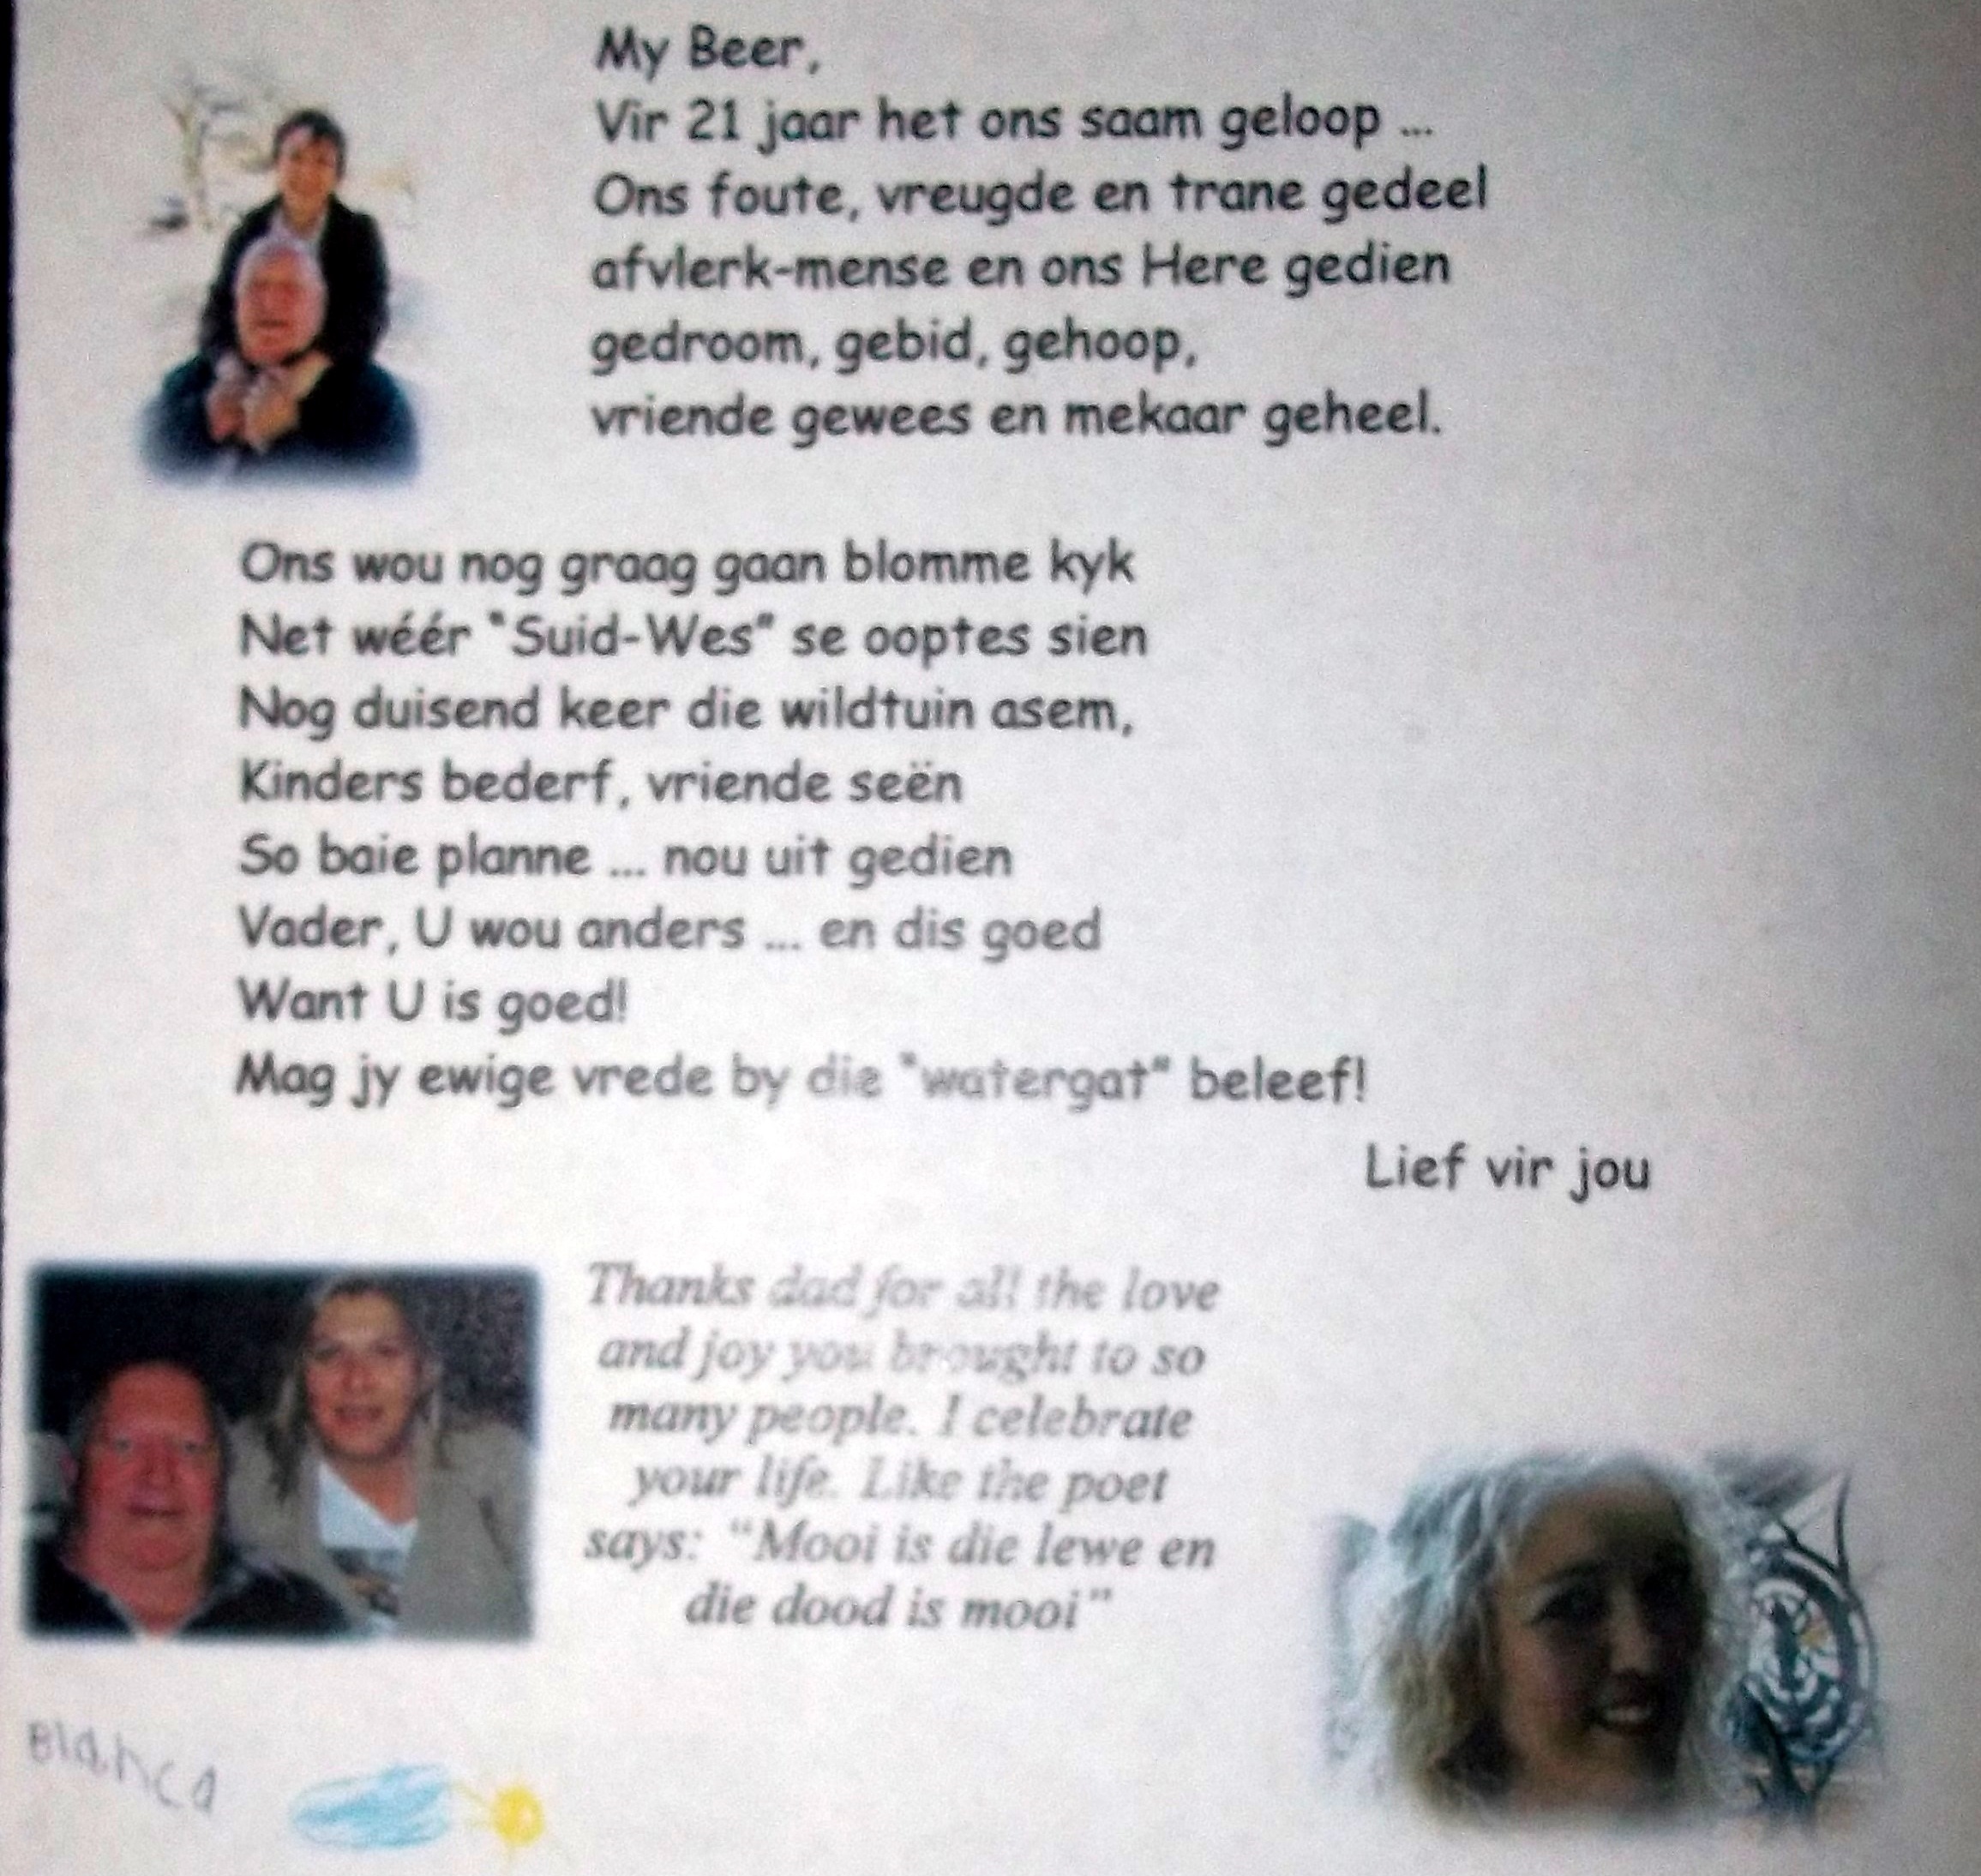 My Beer,
Vir 21 jaar het ons saam geloop ...
Ons foute, vreugde en trane gedeel
afvlerk-mense en ons Here gedien
gedroom, gebid, gehoop,
vriende gewees en mekaar geheel.
Ons wou nog graag gaan blomme kyk
Net wéér "Suid-Wes" se ooptes sien
Nog duisend keer die wildtuin asem,
Kinders bederf, vriende seën
So baie planne ... nou uit gedien
Vader, U wou anders ... en dis goed
Want U is goed!
Mag jy ewige vrede by die "watergat" beleef!
Lief vir jou
Thanks dad for all the love
and joy you brought to so
many people. I celebrate
your life. Like the poet
says: "Mooi is die lewe en
die dood is mooi"
Blanca